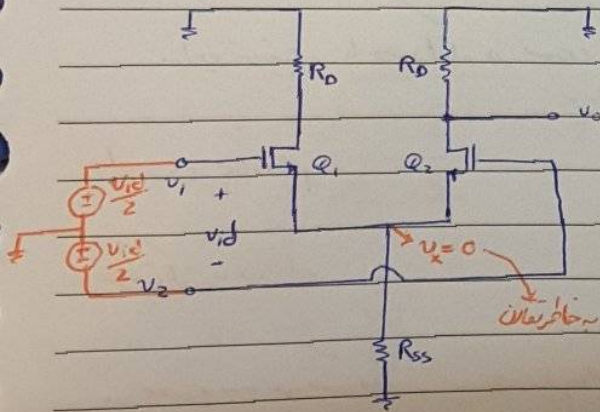 R_D
R_D
v_o
Q_1
Q_2
v_id/2
v_1
+
v_id
-
v_id/2
v_x = 0
v_2
به خاطر تقارن
R_SS